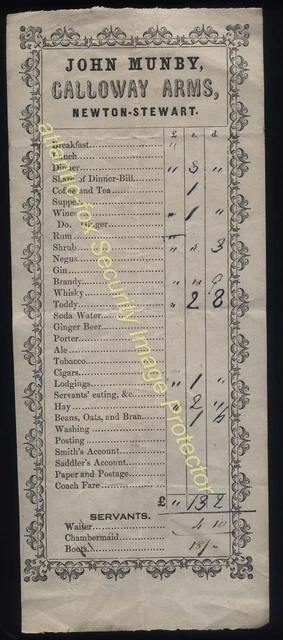 JOHN MUNBY,
GALLOWAY ARMS,
NEWTON-STEWART.
£ s. d.
Breakfast "
Lunch
Dinner " 3 "
Share of Dinner-Bill
Coffee and Tea 1
Supper
Wine " 1 "
Do. Ginger
Rum
Shrub " " 3
Negus
Gin
Brandy " 9
Whisky
Toddy " 2 8
Soda Water
Ginger Beer
Porter
Ale
Tobacco
Cigars
Lodgings " 1 "
Servants' eating, &c.
Hay " 2 "
Beans, Oats, and Bran 1
Washing
Posting
Smith's Account
Saddler's Account
Paper and Postage
Coach Fare
£ " 13 2
SERVANTS.
Waiter 4 10
Chambermaid
Boots 18/-
Security Image Protector